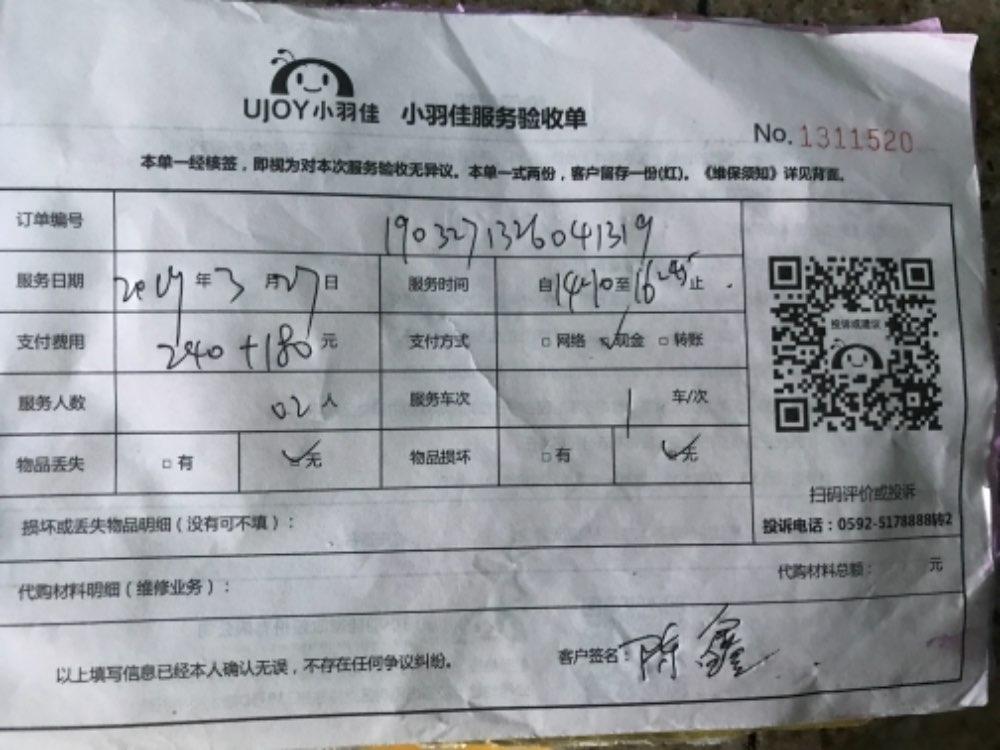 UJOY小羽佳 小羽佳服务验收单
No. 1311520
本单一经核签，即视为对本次服务验收无异议。本单一式两份，客户留存一份(红)。《维保须知》详见背面。
订单编号 1903271326041319
服务日期 2019年3月27日 服务时间 自1410至16 止
支付费用 240+180元 支付方式 □网络 ☑现金 □转账
投诉或建议
服务人数 02人 服务车次 1 车/次
物品丢失 □有 ☑无 物品损坏 □有 ☑无
扫码评价或投诉
投诉电话：0592-5178888转2
损坏或丢失物品明细（没有可不填）：
代购材料明细（维修业务）： 代购材料总额： 元
以上填写信息已经本人确认无误，不存在任何争议纠纷。 客户签名：陈鑫